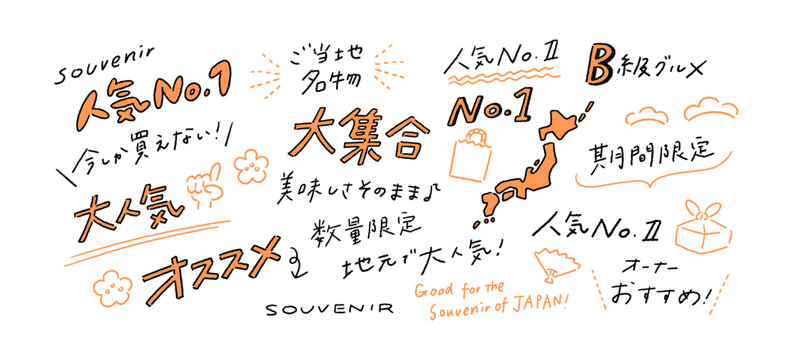 souvenir
人気No.1
ご当地
名物
人気No.Ⅱ
B級グルメ
No.1
今しか買えない!
大集合
期間限定
大人気
美味しさそのまま♪
数量限定
人気No.Ⅱ
オススメ
地元で大人気!
オーナー
おすすめ!
SOUVENIR
Good for the
Souvenir of JAPAN!